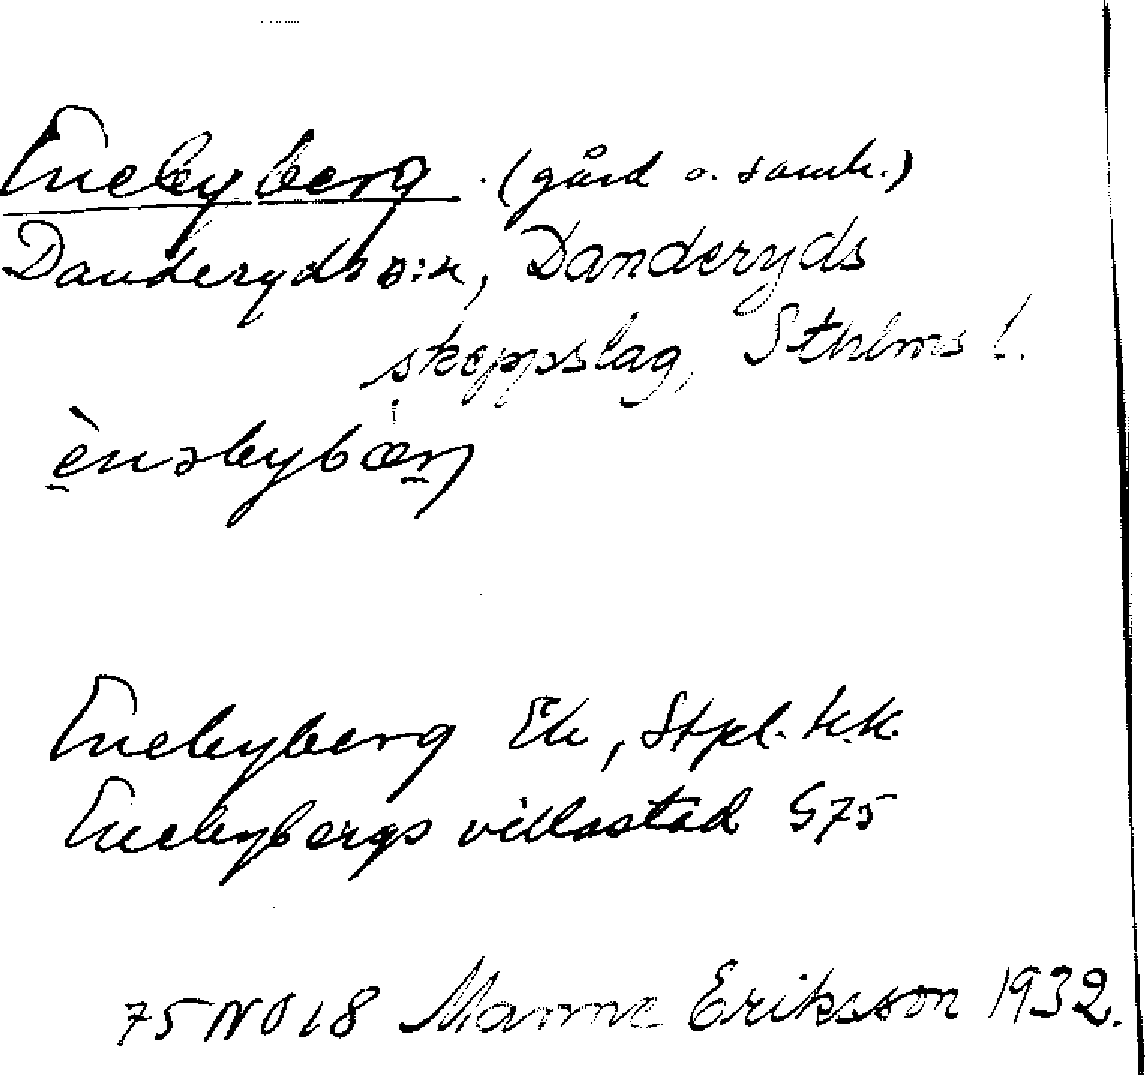 Enebyberg. (gård o. samh.)
Danderyds s:n, Danderyds
skeppslag, Sthlms l.
ènəbybær̨j
Enebyberg Ek, Stpl. tkk.
Enebybergs villastad G75
75 NO 18 Manne Eriksson 1932.